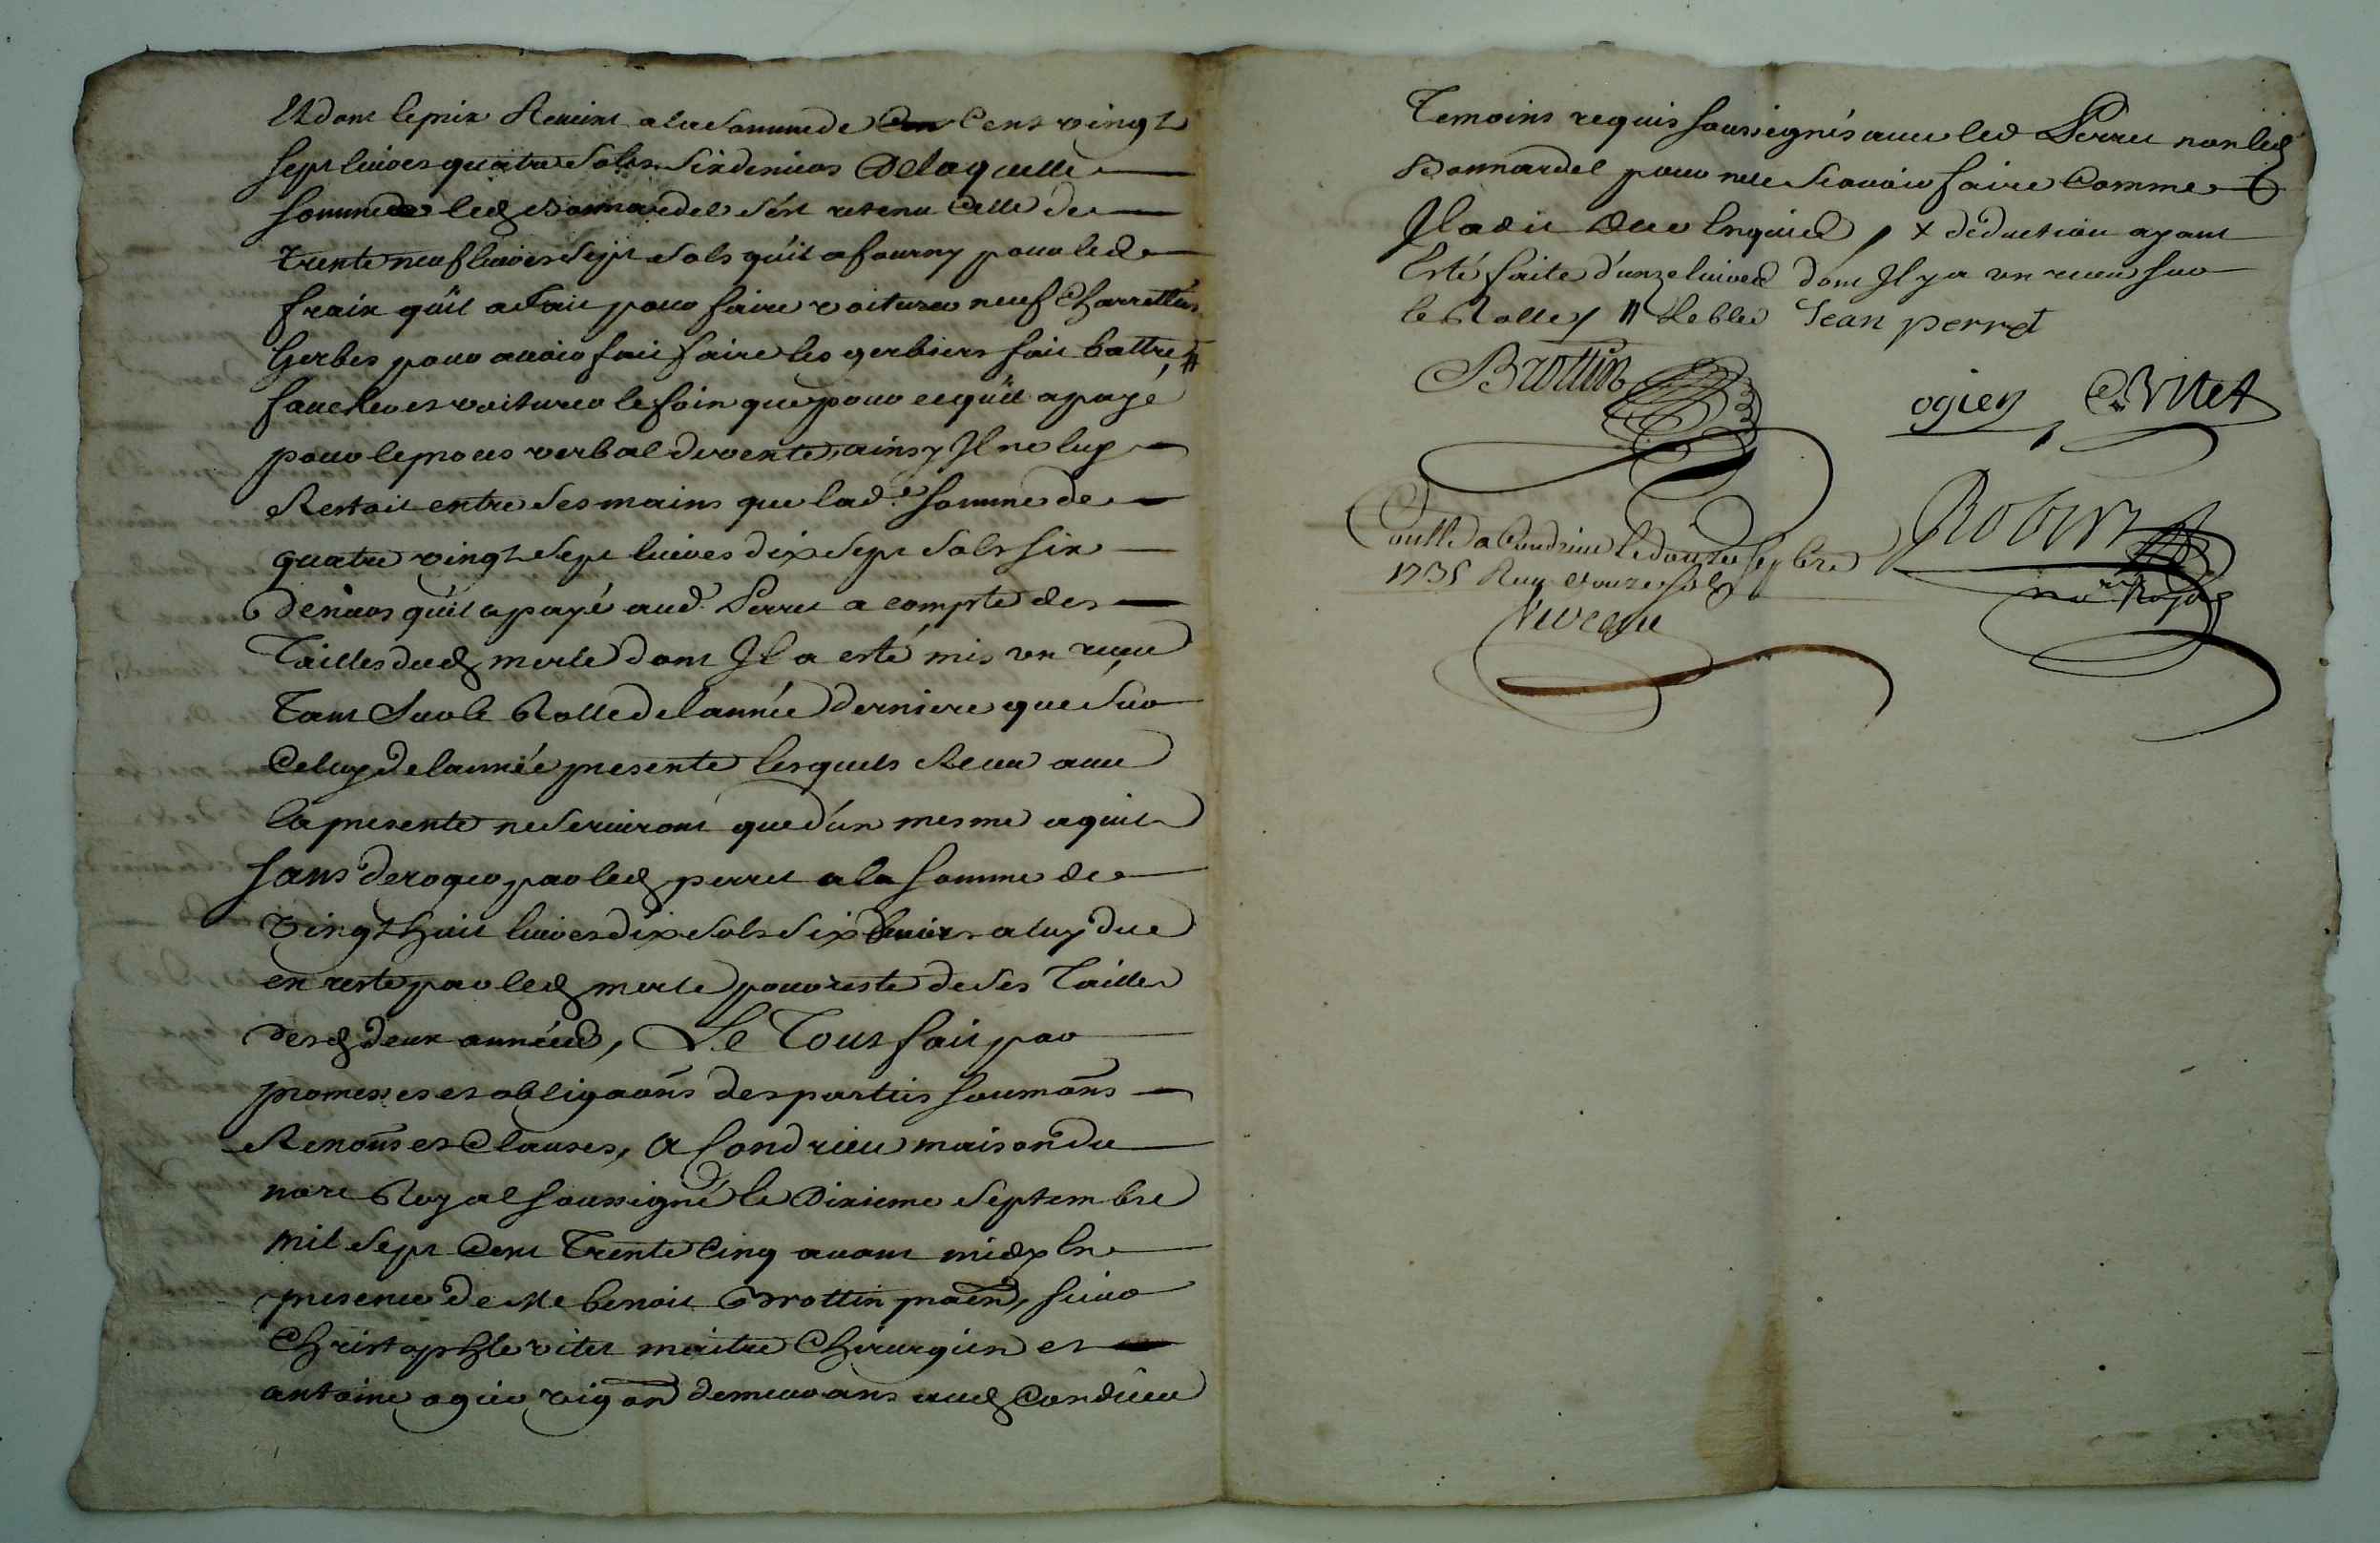 Et dont le prix Revient a la Somme de Cent vingt
sept livres quatre Sols Six deniers De laquelle
Somme led Bonnardel s'est retenu Celle de
trente neuf livres Sept Sols qu'il a fourny pour led
fraix qu'il a fait pour faire voiturer neuf Charrettées
Gerbes pour avoir fait faire les gerbiers fait battre, #
faucher et voiturer le foin que pour ce qu'il a payé
pour le proces verbal de vente, ainsy Il ne luy
Restoit entre Ses mains que lad.e Somme de
quatre vingt Sept livres dix Sept Sols Six
deniers qu'il a payé aud. Perret a compte des
Tailles dud merle dont Il a esté mis un receu
Tant Sur le Rolle de l'année derniere que Sur
Celuy de l'année presente lesquels Receu avec
la presente ne Serviront que d'un mesme aquit
Sans deroger par led perret a la Somme de
vingt huit livres dix Sols Six deniers a luy due
en reste par led merle pour reste de Ses Tailles
desd deux années, Le Tout fait par
promesses et obligaons des parties Soumons
Renons et Clauses, a Condrieu maison du
nore Royal Soussigné le Dixieme Septembre
mil Sept Cent Trente Cinq avant midy En
presence de Me benoit Brottin praen, Sieur
Christophle vitet maitre Chirurgien et
antoine ogier vigon demeurans aud Condrieu
Temoins requis Soussignés avec led Perret non led
Bonnardel pour ne Scavoir faire Comme
Il a dit De ce Enquis, x deduction ayant
Esté faite d'unze livres dont Il y a un receu Sur
le Rolle, # Le bled Jean perret
Brottin
ogier C Vitet
Conllé a Condrieu le douze Sepbre
1735 Reçu douze Sols
Robert
nore Royal